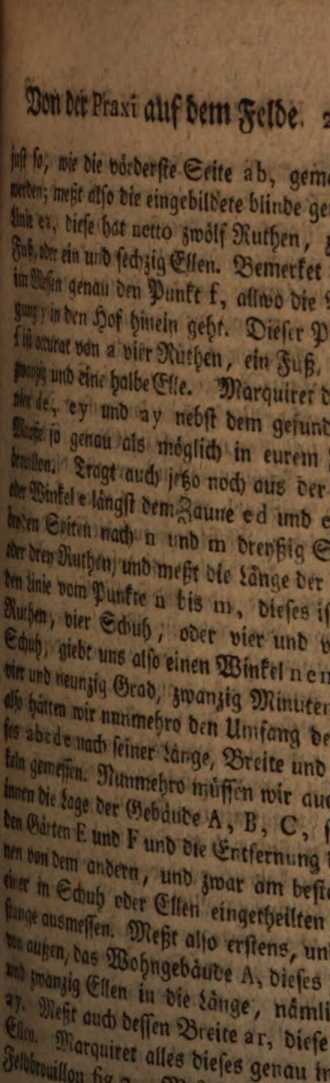 Von der Praxi auf dem Felde.
just so, wie die vörderste Seite ab, geme
werden; meßt also die eingebildete blinde ge
Linie er, diese hat netto zwölf Ruthen,
Fuß, oder ein und sechzig Ellen. Bemerket
im Messen genau den Punkt f, allwo die
in den Hof hinein geht. Dieser P
accurat von a vier Ruthen, ein Fuß,
und eine halbe Elle. Marquiret d
de, ey und ay nebst dem gefund
so genau als möglich in eurem
Tragt auch jetzo noch aus der
oder Winkel e längst dem Zaune ed und e
beyden Seiten nach n und m dreyßig S
oder drey Ruthen, und meßt die Länge der
den Linie vom Punkte n bis m, dieses is
Ruthen, vier Schuh, oder vier und v
Schuh, giebt uns also einen Winkel n e n
vier und neunzig Grad, zwanzig Minuten
also hätten wir nunmehro den Umfang de
ses abcde nach seiner Länge, Breite und
keln gemessen. Nunmehro müssen wir auc
innen die Lage der Gebäude A, B, C, f
den Gärten E und F und die Entfernung
nen von dem andern, und zwar am beste
einer in Schuh oder Ellen eingetheilten
stange ausmessen. Meßt also erstens, un
von außen, das Wohngebäude A, dieses
und zwanzig Ellen in die Länge, nämli
ay. Meßt auch dessen Breite ar, diese
Ellen. Marquiret alles dieses genau in
Feldbrouillon fig